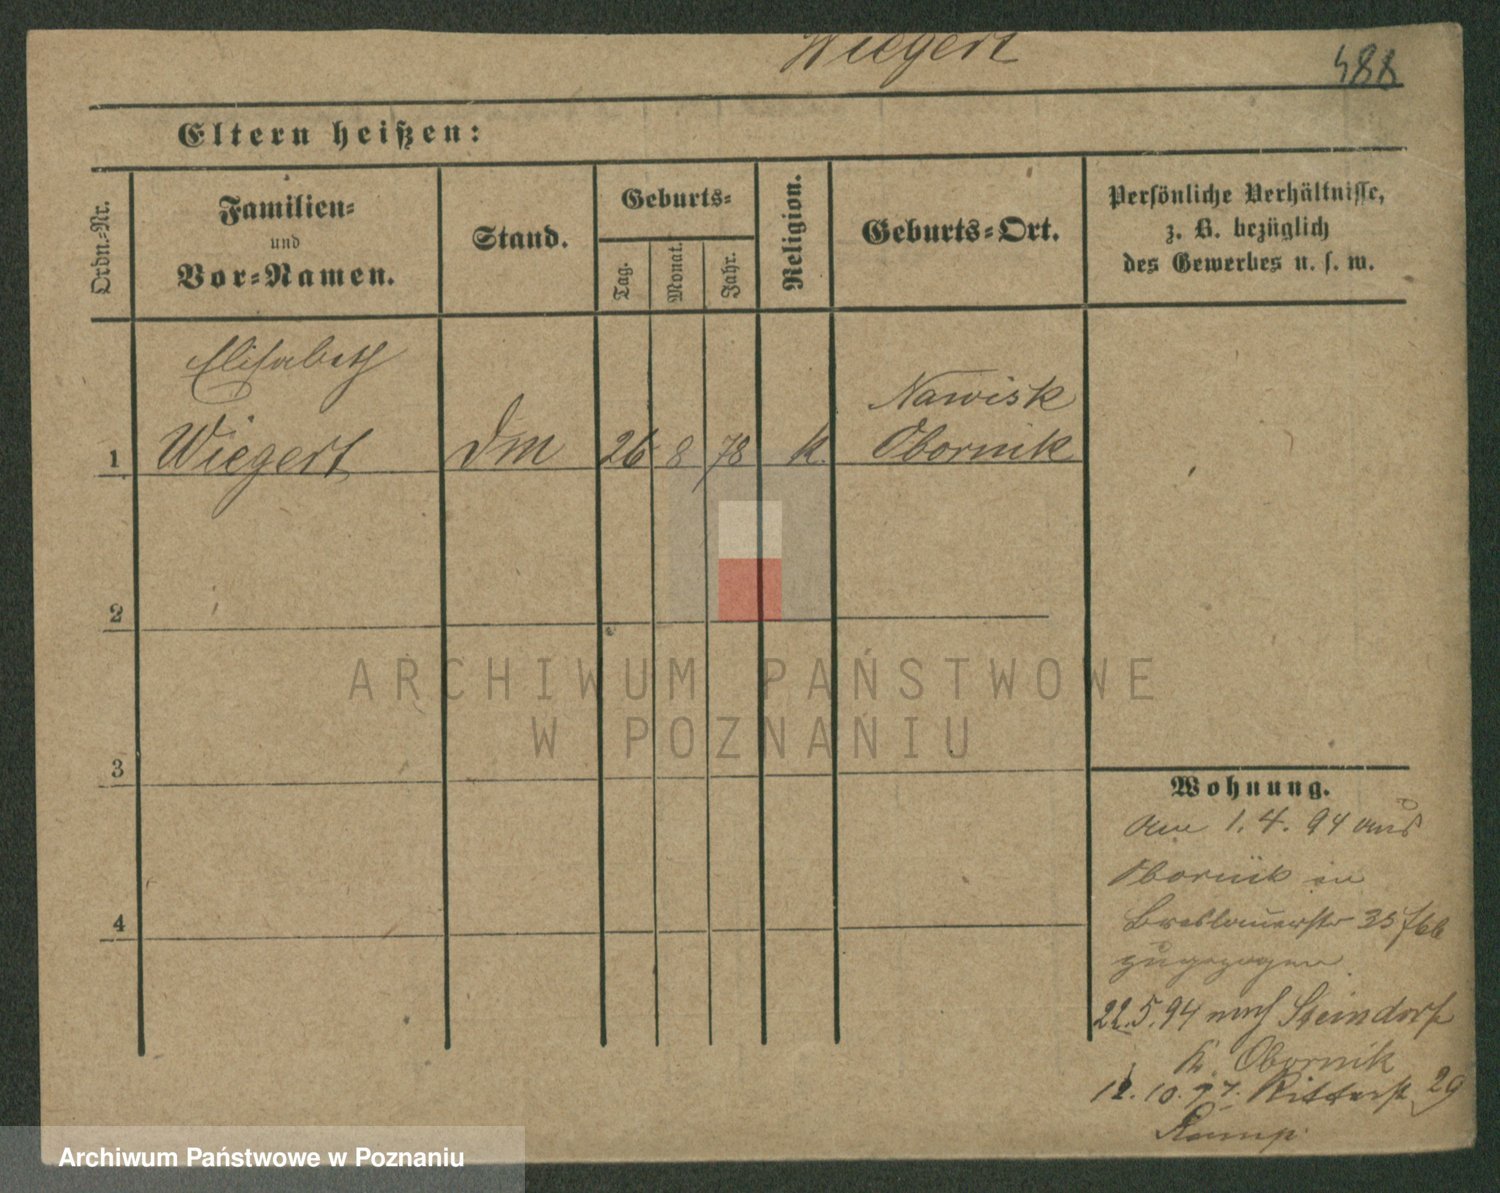 Wiegert
488
Eltern heißen:
Ordn.-Nr.
Familien-
und
Vor-Namen.
Stand.
Geburts-
Tag.
Monat.
Jahr.
Religion.
Geburts-Ort.
Persönliche Verhältnisse,
z. B. bezüglich
des Gewerbes u. s. w.
Elisabeth
Nawisk
1 Wiegert Dm 26 8 78 k. Obornik
2
3
4
Wohnung.
am 1. 4. 94 aus
Obornik in
Breslauerstr 35 fbb
zugezogen.
22.5.94 nach Steindorf
K. Obornik
12. 10. 97. Ritterst 29
Kemp.
ARCHIWUM PAŃSTWOWE
W POZNANIU
Archiwum Państwowe w Poznaniu